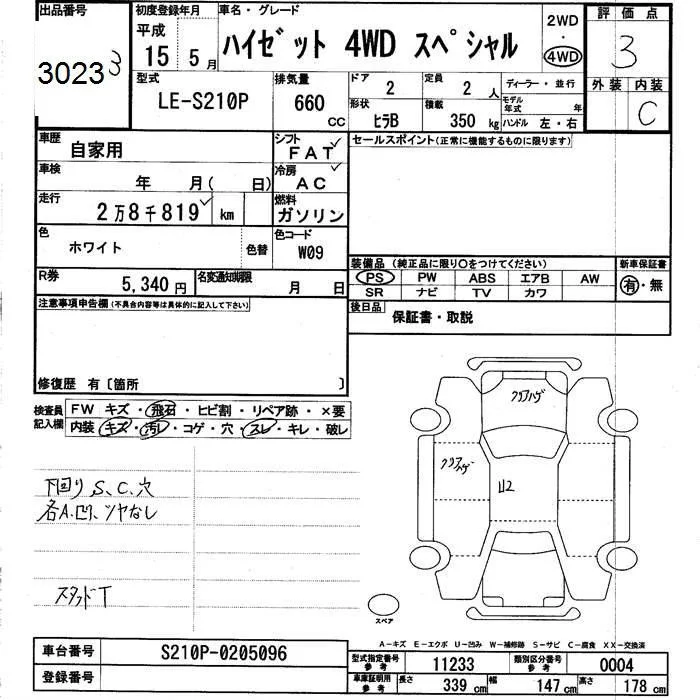 出品番号
3023
3
初度登録年月
平成
15 5月
車名・グレード
ハイゼット 4WD スペシャル
2WD
・
4WD
評価点
3
外装 内装
C
型式
LE-S210P
排気量
660
CC
ドア
2
定員
2人
形状
ヒラB
積載
350 kg
ディーラー・並行
モデル年式 年
ハンドル 左・右
車歴
自家用
シフト
FAT
車検
年 月( 日)
冷房
AC
走行
2万8千819 km
燃料
ガソリン
色
ホワイト
色替
色コード
W09
R券
5,340円
名変通知期限
月 日
セールスポイント(正常に機能するものに限ります)
装備品(純正品に限り○をつけてください)
PS PW ABS エアB AW
SR ナビ TV カワ
新車保証書
有・無
後日品
保証書・取説
注意事項申告欄(不具合内容等は具体的に記入して下さい)
修復歴 有〔箇所 〕
検査員記入欄
FW キズ・飛石・ヒビ割・リペア跡・×要
内装・キズ・汚レ・コゲ・穴・スレ・キレ・破レ
下回りS、C、穴
各A.凹、ツヤなし
スタッドT
クリアハゲ
クリアハゲ
U2
スペア
A-キズ E-エクボ U-凹み W-補修跡 S-サビ C-腐食 XX-交換済
車台番号
S210P-0205096
登録番号
型式指定番号参考
11233
類別区分番号参考
0004
車庫証明用参考
長さ 339 cm
幅 147 cm
高さ 178 cm